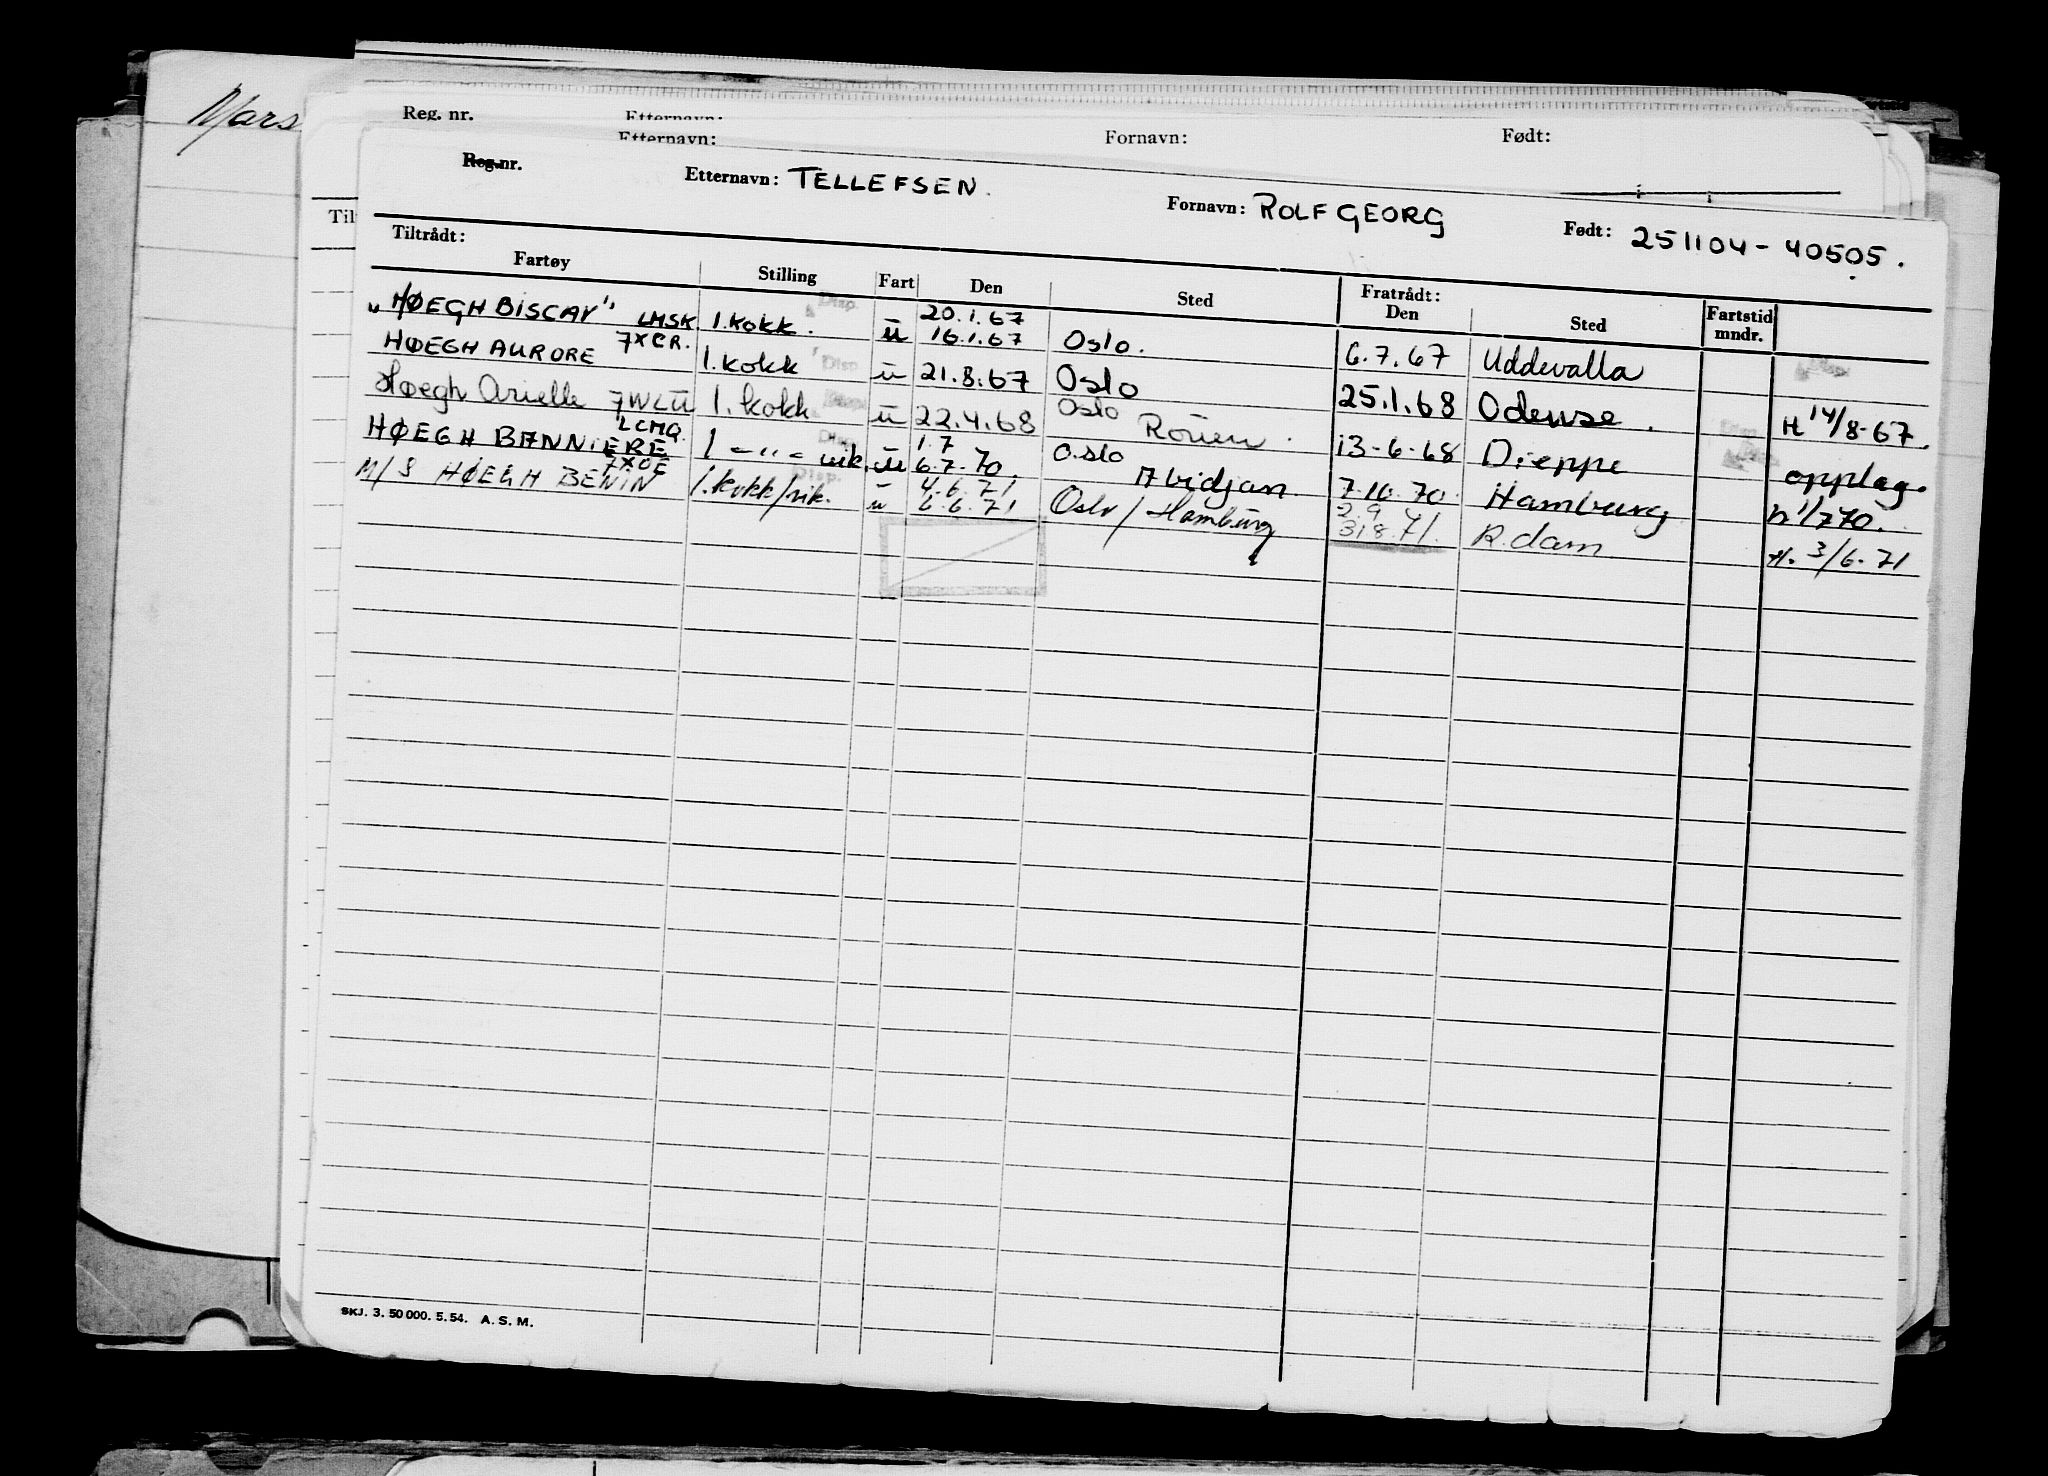 Mars
Reg. nr. Etternavn:
Etternavn: Fornavn: Født:
Reg. nr. Etternavn: TELLEFSEN. Fornavn: ROLF GEORG Født: 251104-40505.
Til
Tiltrådt: Fratrådt:
Fartøy Stilling Fart Den Sted Den Sted Fartstid mndr.
20.1.67
"HØEGH BISCAY" LMSK 1.kokk. ü 16.1.67 Oslo. 6.7.67 Uddevalla
7XCR.
HØEGH AURORE 1.kokk ü 21.8.67 Oslo 25.1.68 Odense. H 14/8-67.
Høegh Arielle 7WLÜ 1.kokk ü 22.4.68 Oslo Rouen. 13-6-68 Dieppe opplag.
LCMQ. 1.7
HØEGH BANNIERE 1 -"- vik. ü 6.7.70. Oslo Abidjan 7.10.70. Hamburg h 1/7 70.
7XOE 4.6.71 2.9
M/S HØEGH BENIN 1.kokk/vik. ü 6.6.71 Oslo/Hamburg 31.8.71. R.dam H. 3/6.71
SKJ. 3. 50 000. 5. 54. A. S. M.